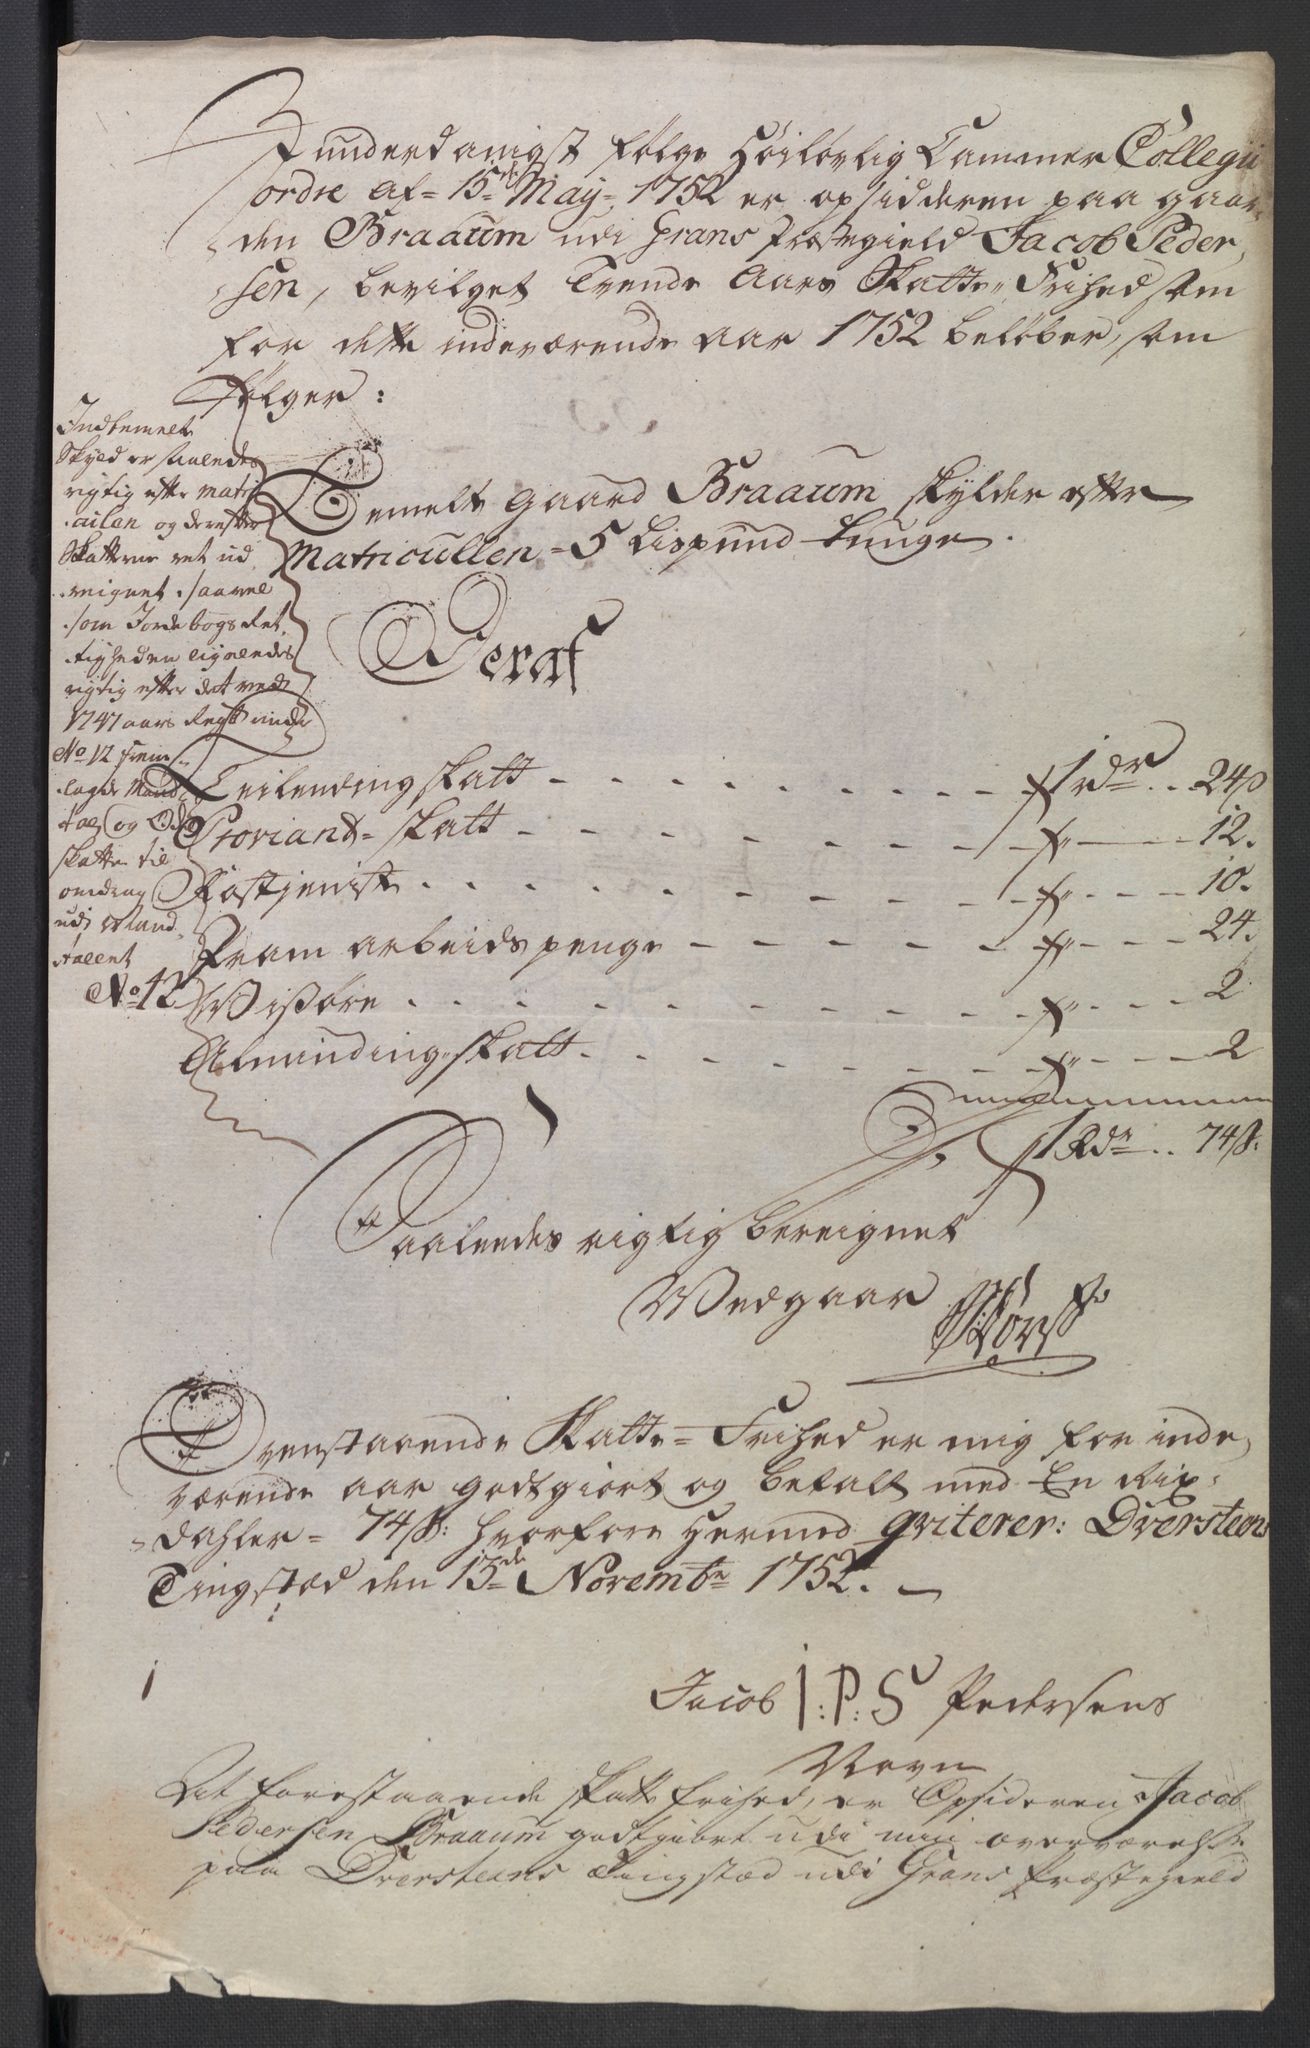 I underdanigst følge Høilovlig Cammer Collegii
ordre af 15de May 1752 er opsidderen paa gaar-
den Braaum udi Grans Præstegield Jacob Peder-
sen, bevilget Trende Aars Skatte-Frihed som
for dette indeværende aar 1752 beløber, som
følger:
Indbemelte
Skyld er saaledes
rigtig efter matri-
culen og derefter
Skatterne ret ud-
reignet, saavel
som Jordebogs Ret-
tigheden lignedes
rigtig efter det ved
1747 aars Regsk: under
No 12 frem-
lagde Mand-
tal og Odels
skatten til
udi Mand-
tallet
No 12
Bemelte gaard Braaum skylder efter
Matricullen = 5 Lispund Tunge.
Deraf
Leilending skatt - - - 1 rdr .. 24 ß
Proviant-skatt - - - " - 12.
Rostjeniste - - - " - 10.
Pram arbeids penge - - - " - 24.
Wisøre - - - " - 2
Alminding skatt - - - " - 2
Summa
1 Rdr .. 74 ß:
Saaledes rigtig bereignet
Vedgaar
Ovenstaaende Skatte-Frihed er mig for inde-
værende aar godtgiort og betalt med En Rix-
dahler = 74 ß: hvorfore hermed qviterer: Dversteens
Tingstæd den 13de Novembr 1752.
Jacob I:P:S Pedersens
Navn
Det forestaaende skatte frihed, er Opsideren Jacob
Pedersen Braaum godtgiort udi min overværelse
paa Dversteens Tingstæd udi Grans Præstegield